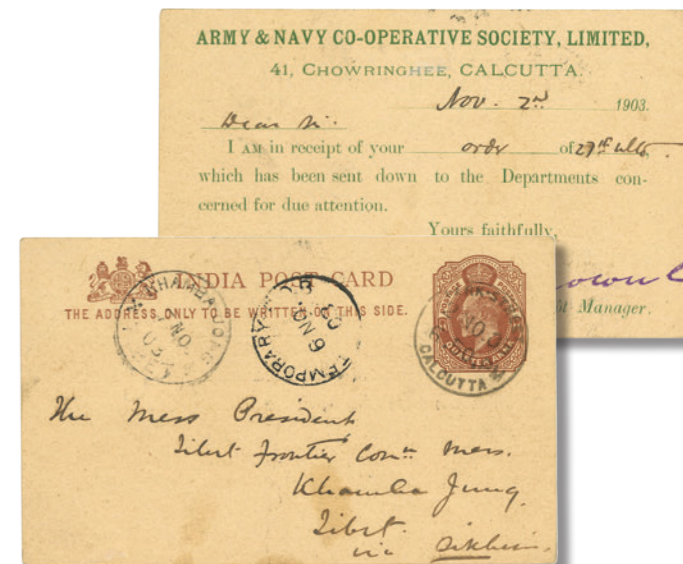 ARMY & NAVY CO-OPERATIVE SOCIETY, LIMITED,
41, CHOWRINGHEE, CALCUTTA.
Nov. 2nd 1903.
Dear Sir.
I AM in receipt of your order of 27th ulto,
which has been sent down to the Departments con-
cerned for due attention.
Yours faithfully,
Manager.
INDIA POST CARD
THE ADDRESS ONLY TO BE WRITTEN ON THIS SIDE.
KHAMBAJONG
NO
03
TEMPORARY P.O.
9 NO
03
POSTAGE POSTAGE
QUARTER ANNA
CALCUTTA
NO
The Mess President
Tibet Frontier Comn Mess.
Khamba Jung.
Tibet.
via Sikkim.